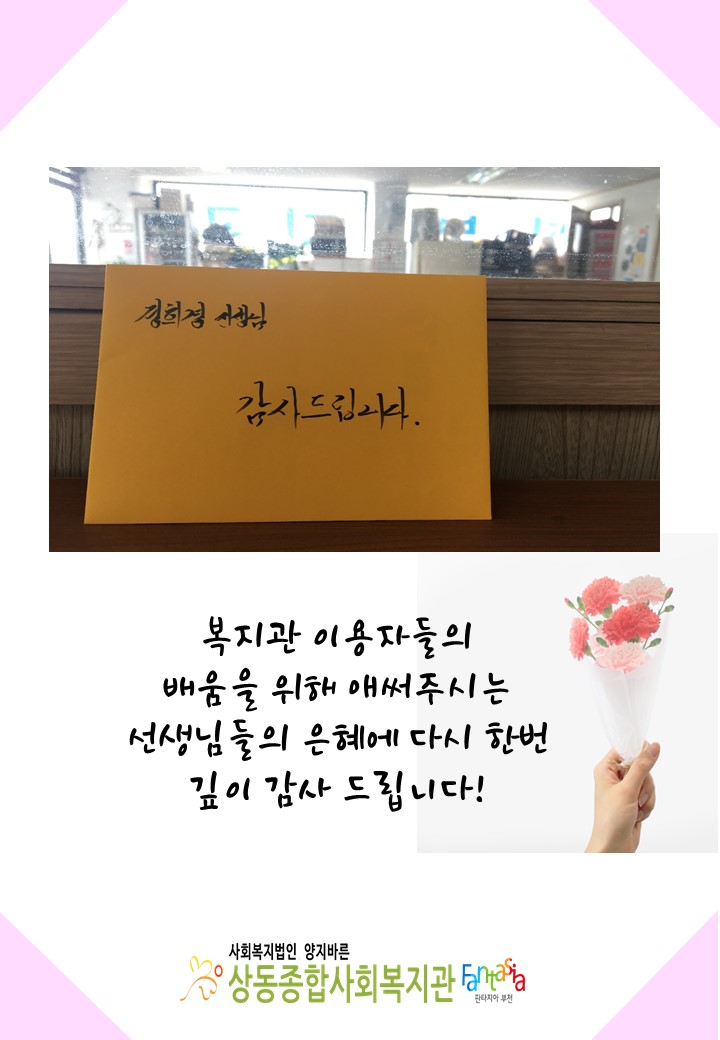 경희경 선생님
감사드립니다.
복지관 이용자들의
배움을 위해 애써주시는
선생님들의 은혜에 다시 한번
깊이 감사 드립니다!
사회복지법인 양지바른
상동종합사회복지관 Fantasia
판타지아 부천